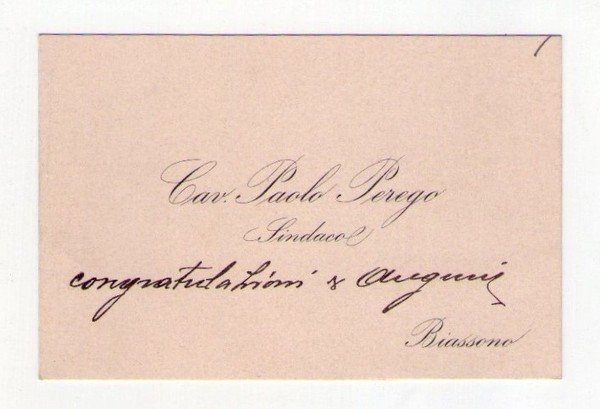 Cav. Paolo Perego
Sindaco
congratulazioni & Auguri
Biassono